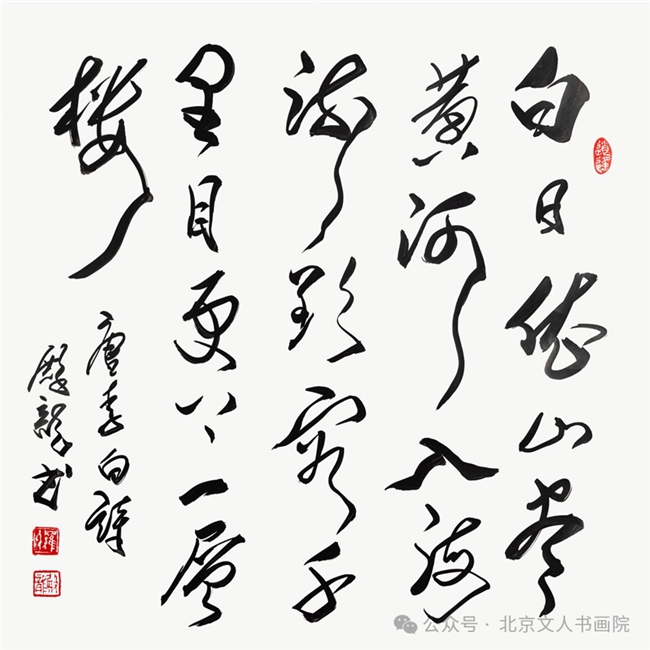 白日依山尽
黄河入海
流欲穷千
里目更上一层
楼
唐李白诗
公众号 · 北京文人书画院